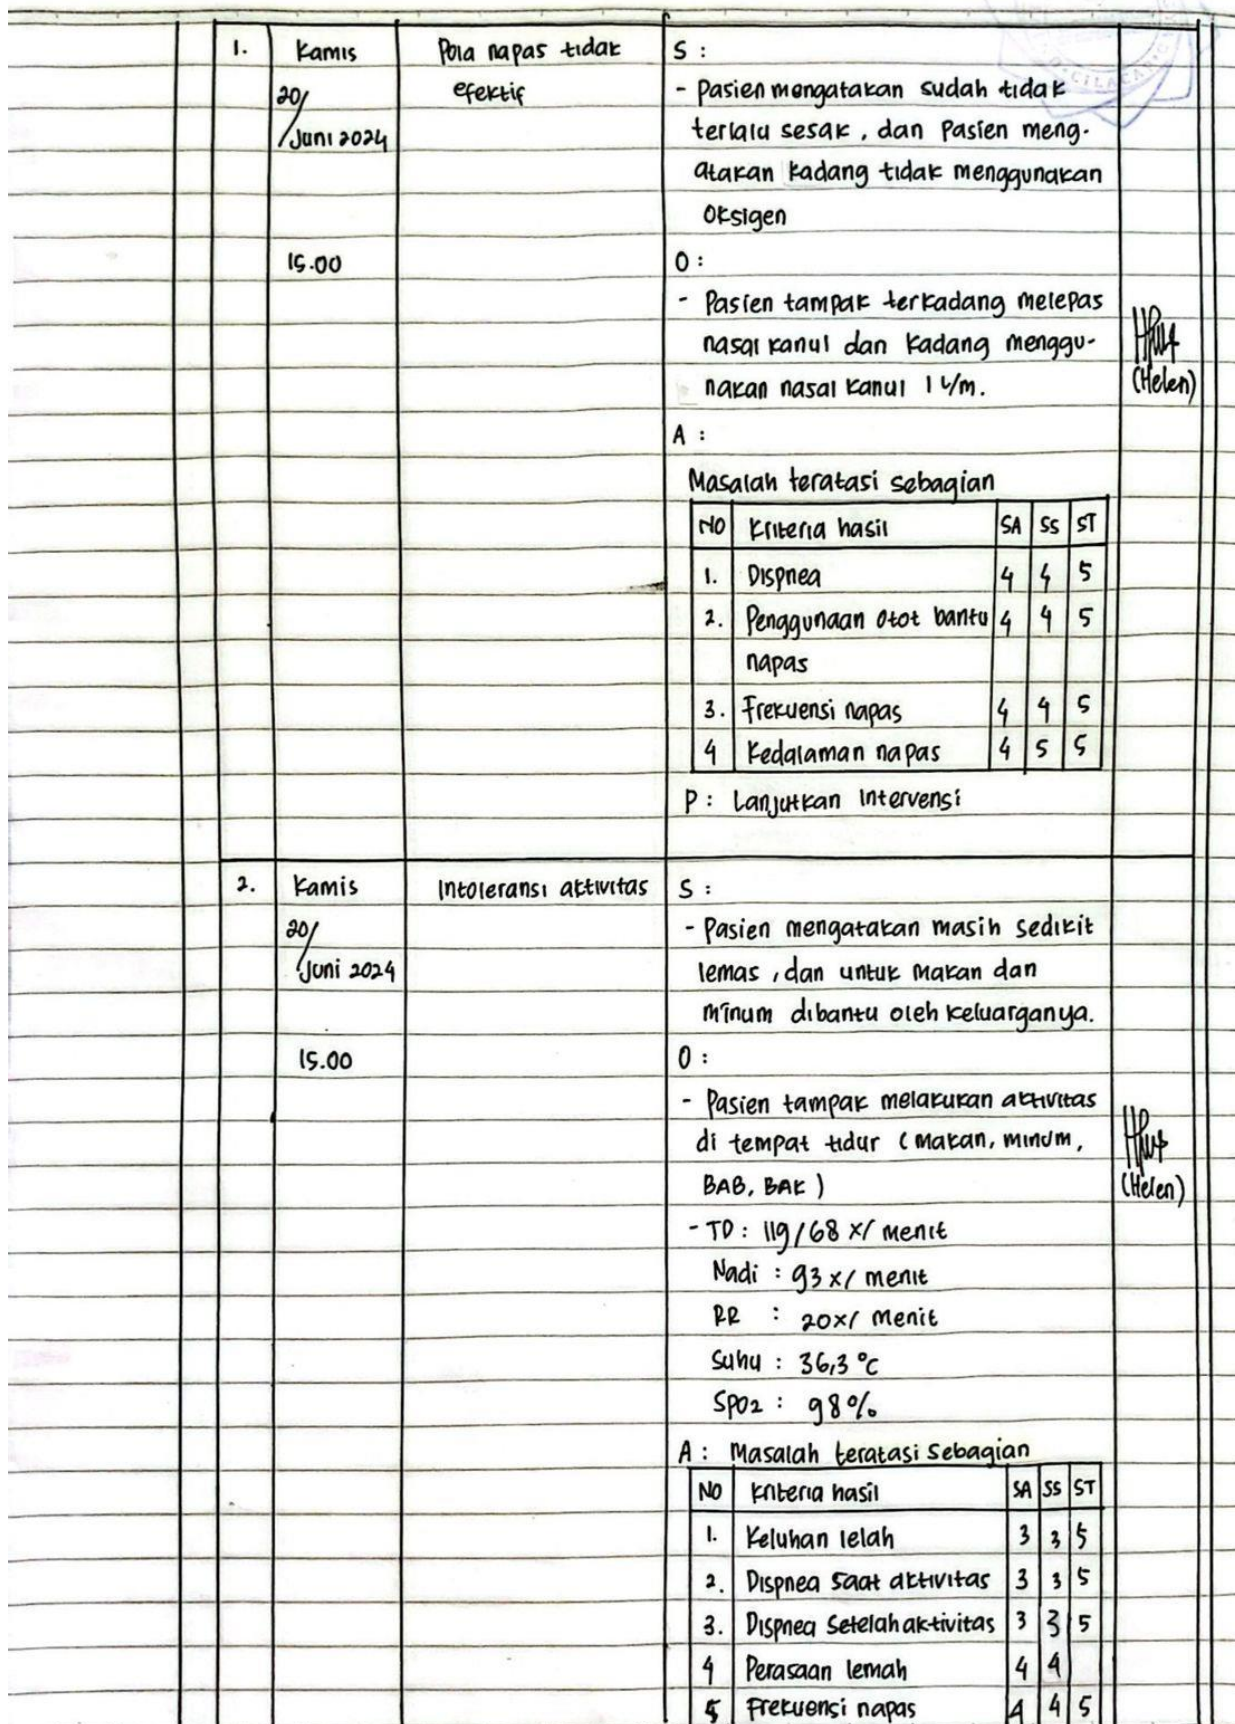 1. Kamis Pola napas tidak S :
20/ efektif - Pasien mengatakan sudah tidak
Juni 2024 terlalu sesak, dan Pasien meng-
atakan kadang tidak menggunakan
Oksigen
15.00 O :
- Pasien tampak terkadang melepas
nasal kanul dan kadang menggu-
nakan nasal kanul 1 L/m.
(Helen)
A :
Masalah teratasi sebagian
NO Kriteria hasil SA SS ST
1. Dispnea 4 4 5
2. Penggunaan otot bantu 4 4 5
napas
3. Frekuensi napas 4 4 5
4 Kedalaman napas 4 5 5
P : Lanjutkan Intervensi
2. Kamis Intoleransi aktivitas S :
20/ - Pasien mengatakan masih sedikit
Juni 2024 lemas, dan untuk makan dan
minum dibantu oleh keluarganya.
15.00 O :
- Pasien tampak melakukan aktivitas
di tempat tidur (makan, minum,
BAB, BAK)
(Helen)
- TD : 119/68 x/ menit
Nadi : 93 x/ menit
RR : 20x/ menit
Suhu : 36,3 °C
SPO2 : 98%
A : Masalah teratasi sebagian
NO Kriteria hasil SA SS ST
1. Keluhan lelah 3 3 5
2. Dispnea saat aktivitas 3 3 5
3. Dispnea Setelah aktivitas 3 3 5
4 Perasaan lemah 4 4
5 Frekuensi napas 4 4 5
CILACAP